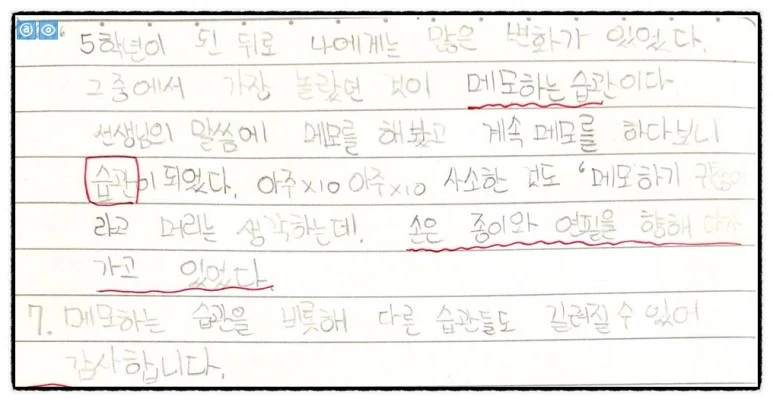 5학년이 된 뒤로 나에게는 많은 변화가 있었다.
그중에서 가장 놀랐던 것이 메모하는 습관이다
선생님의 말씀에 메모를 해봤고 계속 메모를 하다보니
습관이 되었다. 아주×10 아주×10 사소한 것도 "메모하기
라고 머리는 생각하는데. 손은 종이와 연필을 향해
가고 있었다
7. 메모하는 습관을 비롯해 다른 습관들도 길러질 수 있어
감사합니다.